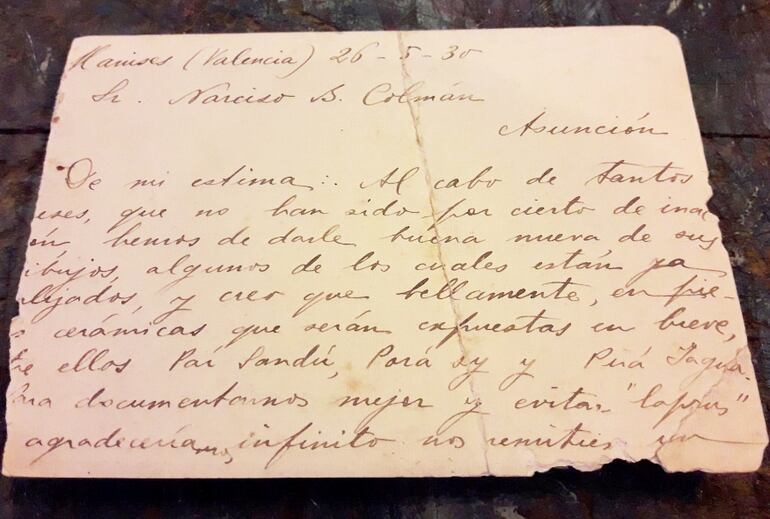 Manises (Valencia) 26-5-30
Sr. Narciso B. Colmán
Asunción
De mi estima:. Al cabo de tantos
eses, que no han sido por cierto de inac
ón hemos de darle buena nueva de sus
ibujos, algunos de los cuales están ya
lejados, y creo que bellamente, en pie-
s cerámicas que serán expuestas en breve,
tre ellos Paí Sandú, Porá sy y Pirá Jagua.
Para documentarnos mejor y evitar "lapsus"
agradeceríamos infinito nos remities un